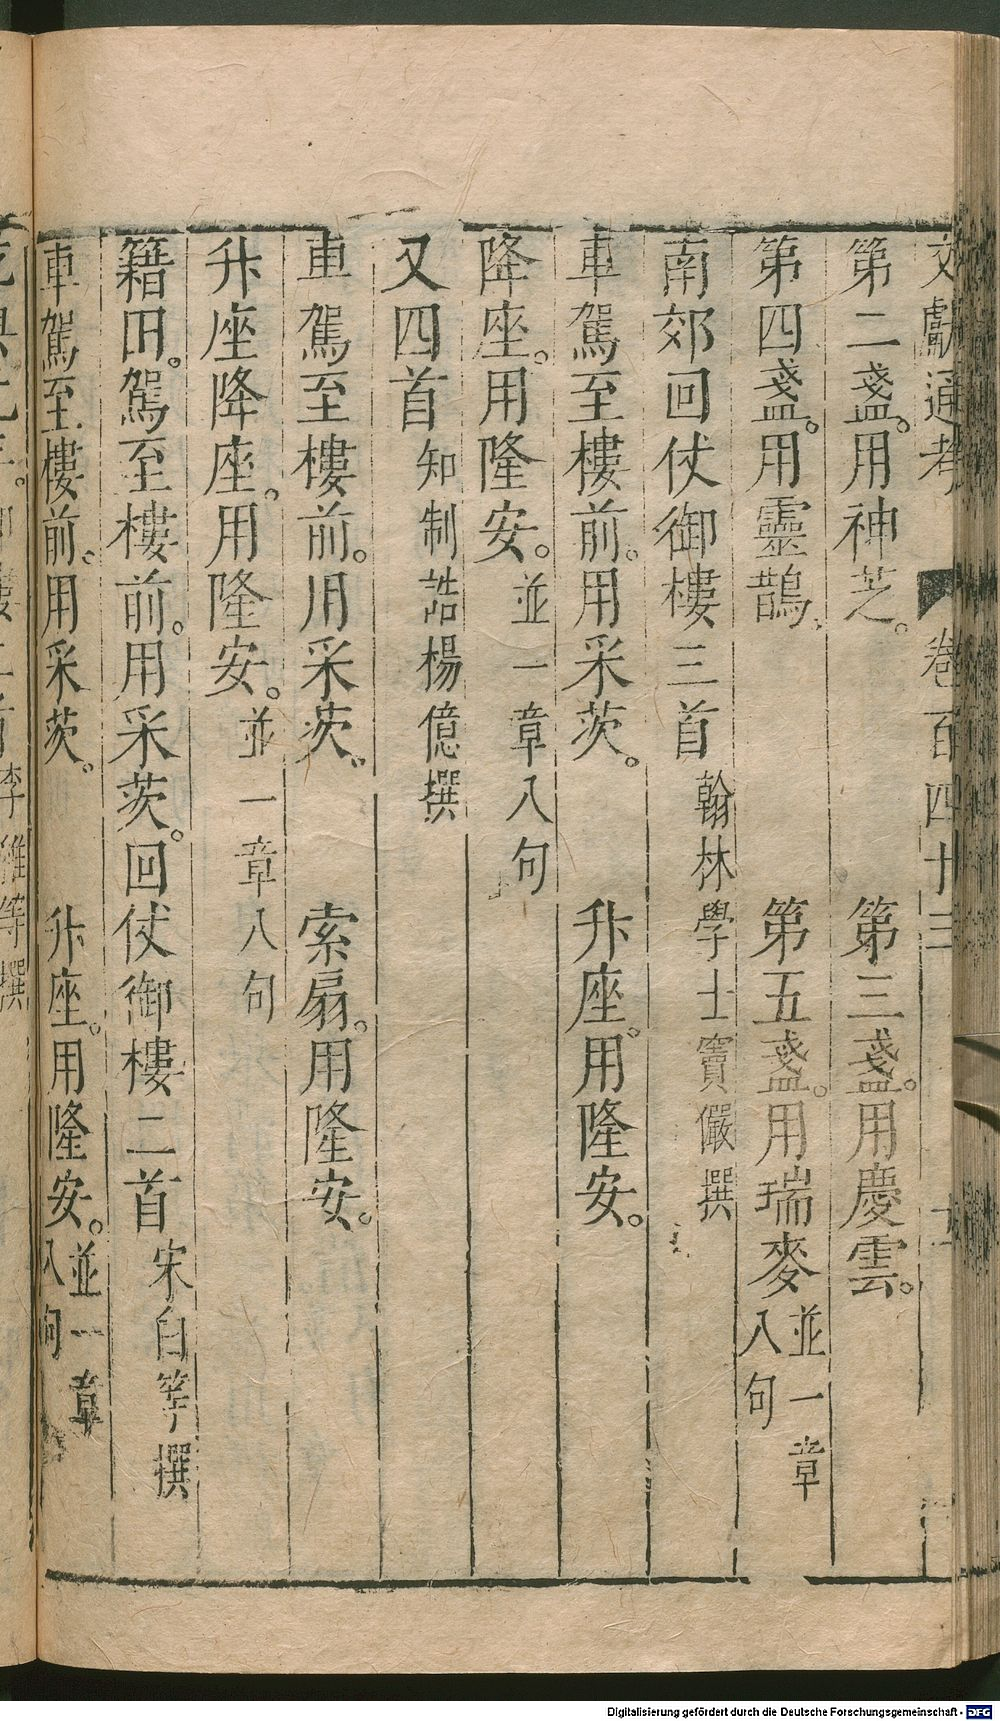 文獻通考 卷百四十三
第二盞。用神芝。 第三盞。用慶雲。
第四盞。用靈鵲。 第五盞。用瑞麥並一章八句
南郊回仗御樓三首翰林學士竇儼撰
車駕至樓前。用采茨。 升座。用隆安。
降座。用隆安。並一章八句
又四首知制誥楊億撰
車駕至樓前。用采茨。 索扇。用隆安。
升座降座。用隆安。並一章八句
籍田。駕至樓前。用采茨。回仗御樓二首宋白等撰
車駕至樓前。用采茨。 升座。用隆安。並一章八句
李維等撰
Digitalisierung gefördert durch die Deutsche Forschungsgemeinschaft - DFG